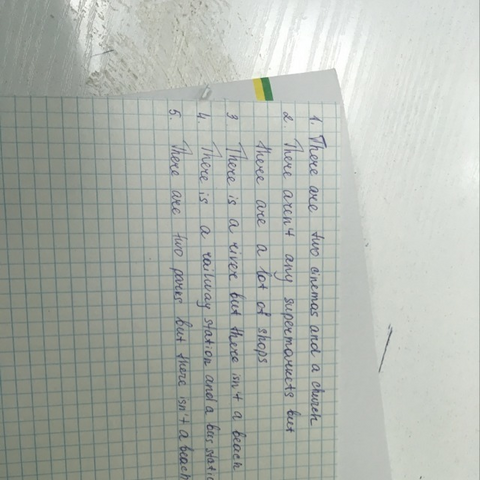 1. There are two cinemas and a church
2 There aren't any supermarkets but
there are a lot of shops
3 There is a river but there isn't a beach
4. There is a railway station and a bus statio
5. There are two parks but there isn't a beach